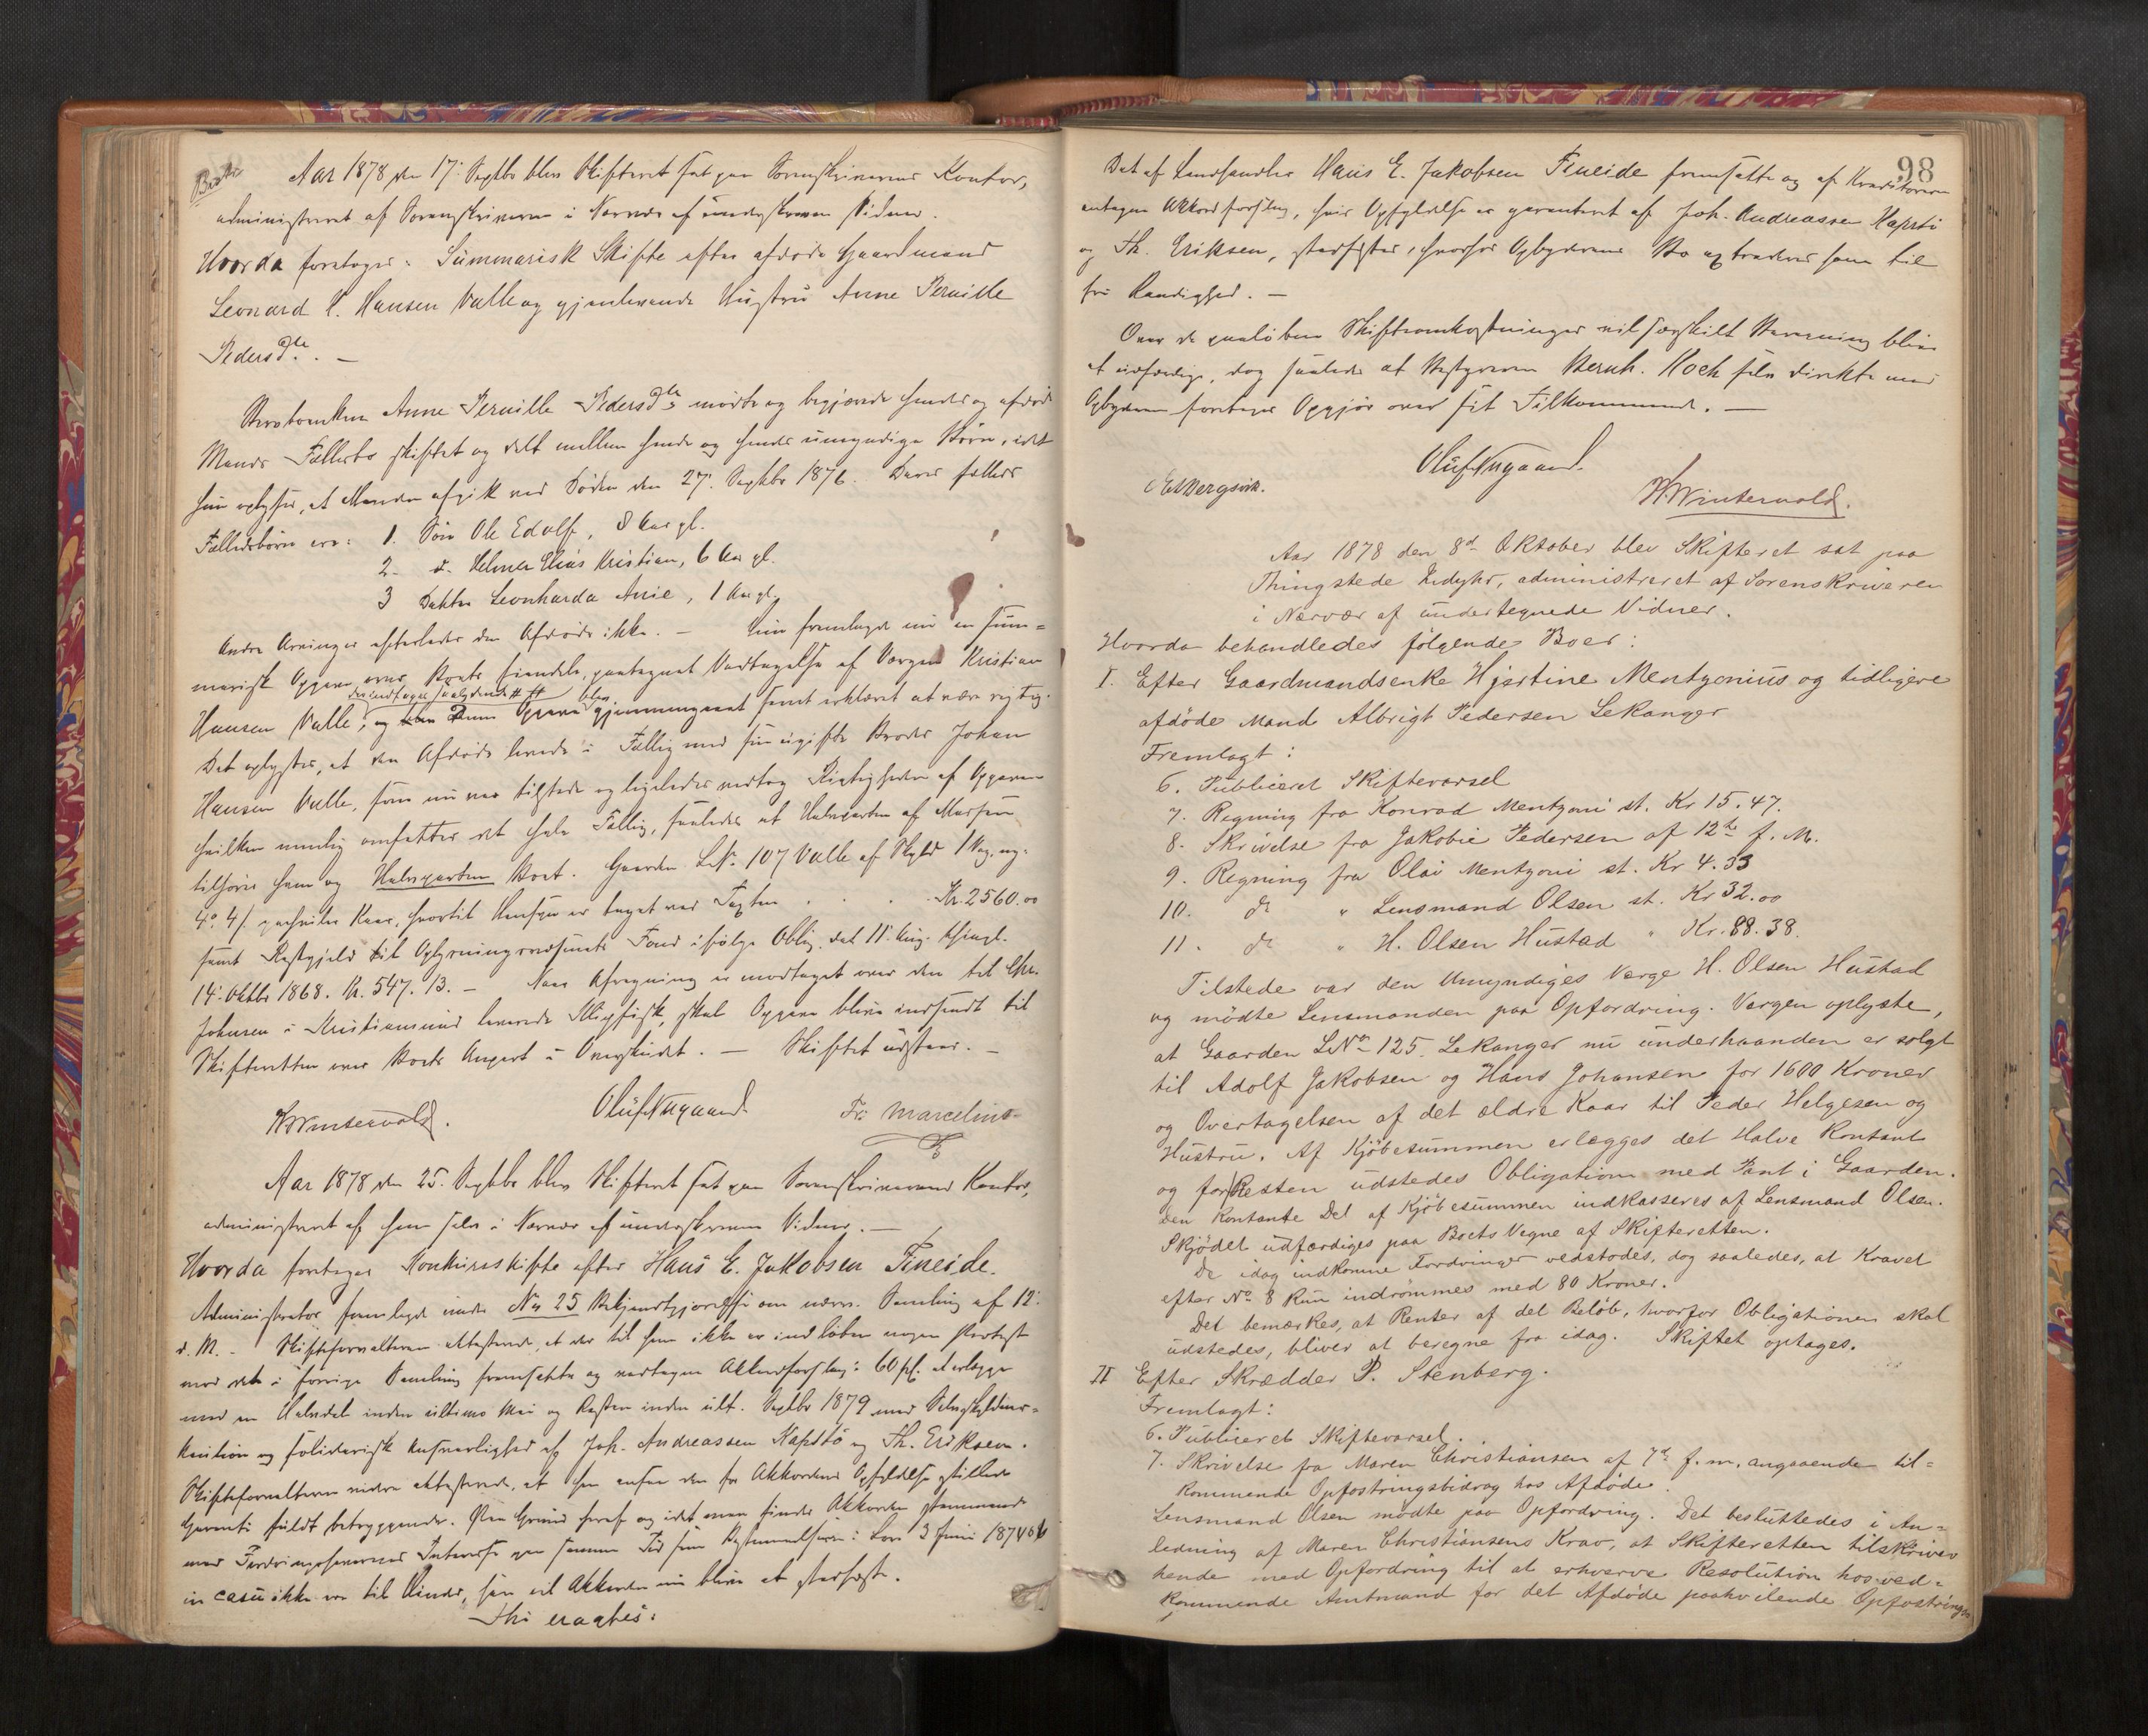 Aar 1878 den 17' Septbr blev Skifteret sat paa Sorenskriverens Kontor,
administreret af Sorenskriveren i Nærvær af underskrevne Vidner.
Hvorda foretoges: Summarisk Skifte efter afdøde Gaardmand
Leonard H. Hansen Valle og gjenlevende Hustru Anne Pernille
Pedersdtr. —
Anne Pernille Pedersdtr mødte og begjærede hendes og afdøde
Mands Fællesbo skiftet og delt mellem hende og hendes umyndige Børn, idet
hun oplyste, at Manden afgik ved Døden den 27' Septbr 1876. Deres fælles
Fællesbørn ere: 1. Søn Ole Edolf, 8 Aar gl.
2. d. Helmer Elias Kristian, 6 Aar gl.
3 Datter Leonharda Anie, 1 Aar gl.
Andre Arvinger efterlader den Afdøde ikke. — Hun fremlagde nu en sum=
marisk Opgave over Boets Eiendele, paategnet Vedtagelse af Værgen Kristian
Hansen Valle, og denne Opgave blev gjennemgaaet samt erklæret at være rigtig.
Det oplystes, at den Afdøde levede i Fællig med sin ugifte Broder Johan
Hansen Valle, som nu var tilstede og ligeledes vedtog Rigtigheden af Opgaven
hvilken nemlig omfatter det hele Fællig, saaledes at Halvparten af Massen
tilhører ham og Halvparten Boet. Gaarden LNo 107 Valle af Skyld 1 Vog, og
hvortil Hensyn er taget ved Taxten . . . Kr. 2560.00
samt Restgjeld til Oplysningsvæsenets Fond ifølge Oblig. dat 11' Aug. thingl.
14' Oktbr 1868. Kr. 547. 13. — Naar Afregning er modtaget over den til Chr.
Johnsen i Kristiansund leverede Klipfisk, skal Opgave blive indsendt til
Skifteretten over Boets Anpart i Overskudet. — Skiftet udstaar. —
H Wintervold. Oluf Nygaard Fr: Marcelius
Aar 1878 den 25. Septbr blev Skifteret sat paa Sorenskriverens Kontor,
administreret af ham selv i Nærvær af underskrevne Vidner. —
Hvorda foretoges Konkursskifte efter Hans E. Jakobsen Fineide.
Administrator fremlagde under No 25 Bekjendtgjørelse om nærv. Samling af 12'
d. M. — Skifteforvalteren attesterede, at der til ham ikke er indløben nogen Protest
mod det i forrige Samling fremsatte og vedtagne Akkordforslag: 60 pCt. at erlægge
med en Halvdel inden ultimo Mai og Resten inden ult. Septbr 1879 med Selvskyldner=
kaution og solidarisk Ansvarlighed af Joh. Andreassen Kapstø og Th. Eriksen.
Skifteforvalteren videre attesterede, at han anser den for Akkordens Opfyldelse stillede
Garanti fuldt betryggende. Paa Grund heraf og idet man finder Akkorden stemmende
med Fordringshavernes Interesse paa samme Tid som Bestemmelserne i Lov 3 Juni 1874
in casu ikke er til Hinder, saa vil Akkorden nu blive at stadfæste.
Thi eragtes:
98
Det af Landhandler Hans E. Jakobsen Fineide fremsatte og af Kreditorerne
antagne Akkordforslag, hvis Opfyldelse er garanteret af Joh. Andreassen Kapstø
og Th. Eriksen, stadfæstes, hvorfor Opbyderens Bo extraderes ham til
fri Raadighed. —
Over de paaløbne Skifteomkostninger vil særskilt Beregning blive
at udfærdige, dog saaledes at Bestyreren Bernh. Koch selv direkte med
Opbyderen foretager Opgjør over sit Tilkommende. —
Oluf Nygaard.
E Bergsvik. H Wintervold.
Aar 1878 den 8d Oktober blev Skifteret sat paa
Thingstede Indyhr, administreret af Sorenskriveren
i Nærvær af undertegnede Vidner.
Hvorda behandledes følgende Boer:
I. Efter Gaardmandsenke Hjertine Mentzonius og tidligere
afdøde Mand Albrigt Pedersen Lekanger
Fremlagt:
6. Publiceret Skiftevarsel
7. Regning fra Konrad Mentzoni st. Kr 15.47.
8. Skrivelse fra Jakobie Pedersen af 12te f. M.
9. Regning fra Olai Mentzoni st. Kr 4.33
10. do " Lensmand Olsen st. Kr 32.00
11. do " H. Olsen Hustad " Kr. 88.38.
Tilstede var den Umyndiges Værge H. Olsen Hustad
og mødte Lensmanden paa Opfordring. Værgen oplyste,
at Gaarden LNo 125. Lekanger nu underhaanden er solgt
til Adolf Jakobsen og Hans Johansen for 1600 Kroner
og Overtagelsen af det ældre Kaar til Peder Helgesen og
Hustru. Af Kjøbesummen erlægges det Halve Kontant
og for Resten udstedes Obligation med Pant i Gaarden.
Den Kontante Del af Kjøbesummen indkasseres af Lensmand Olsen.
Skjødet udfærdiges paa Boets Vegne af Skifteretten.
De idag indkomne Fordringer vedstodes, dog saaledes, at Kravet
efter No 8 kun indrømmes med 80 Kroner.
Det bemærkes, at Renter af det Beløb, hvorfor Obligationen skal
udstedes, bliver at beregne fra idag. Skiftet optages.
II Efter Skrædder P. Stenberg.
Fremlagt:
6. Publiceret Skiftevarsel.
7. Skrivelse fra Maren Christiansen af 7de f. m. angaaende til=
kommende Opfostringsbidrag hos Afdøde.
Lensmand Olsen mødte paa Opfordring. Det besluttedes i An=
ledning af Maren Christiansens Krav, at Skifteretten tilskriver
hende med Opfordring til at erhverve Resolution hos ved=
kommende Amtmand for det Afdøde paahvilende Opfostrings